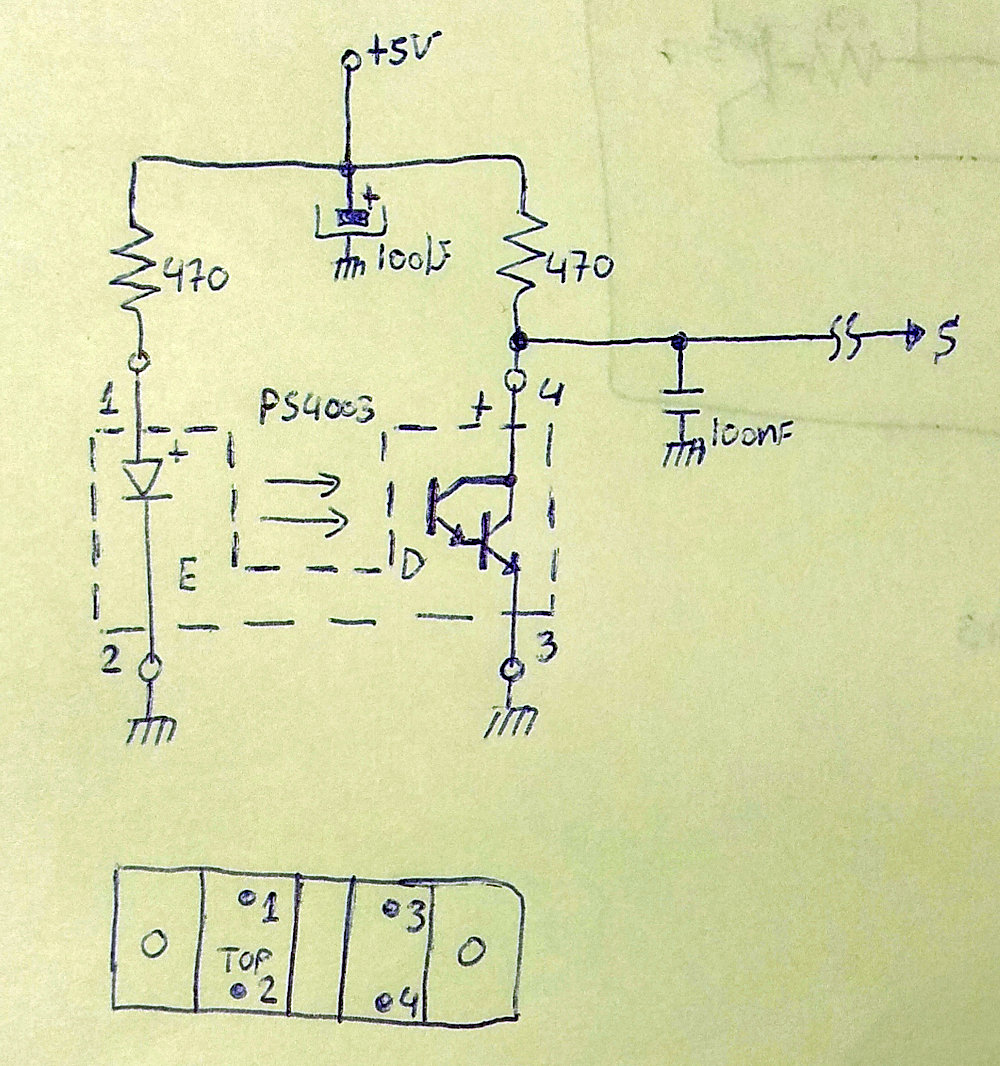 +5V
+
100µF
470
470
S
1
PS4003
+
4
100nF
+
E
D
2
3
1
3
TOP
2
4